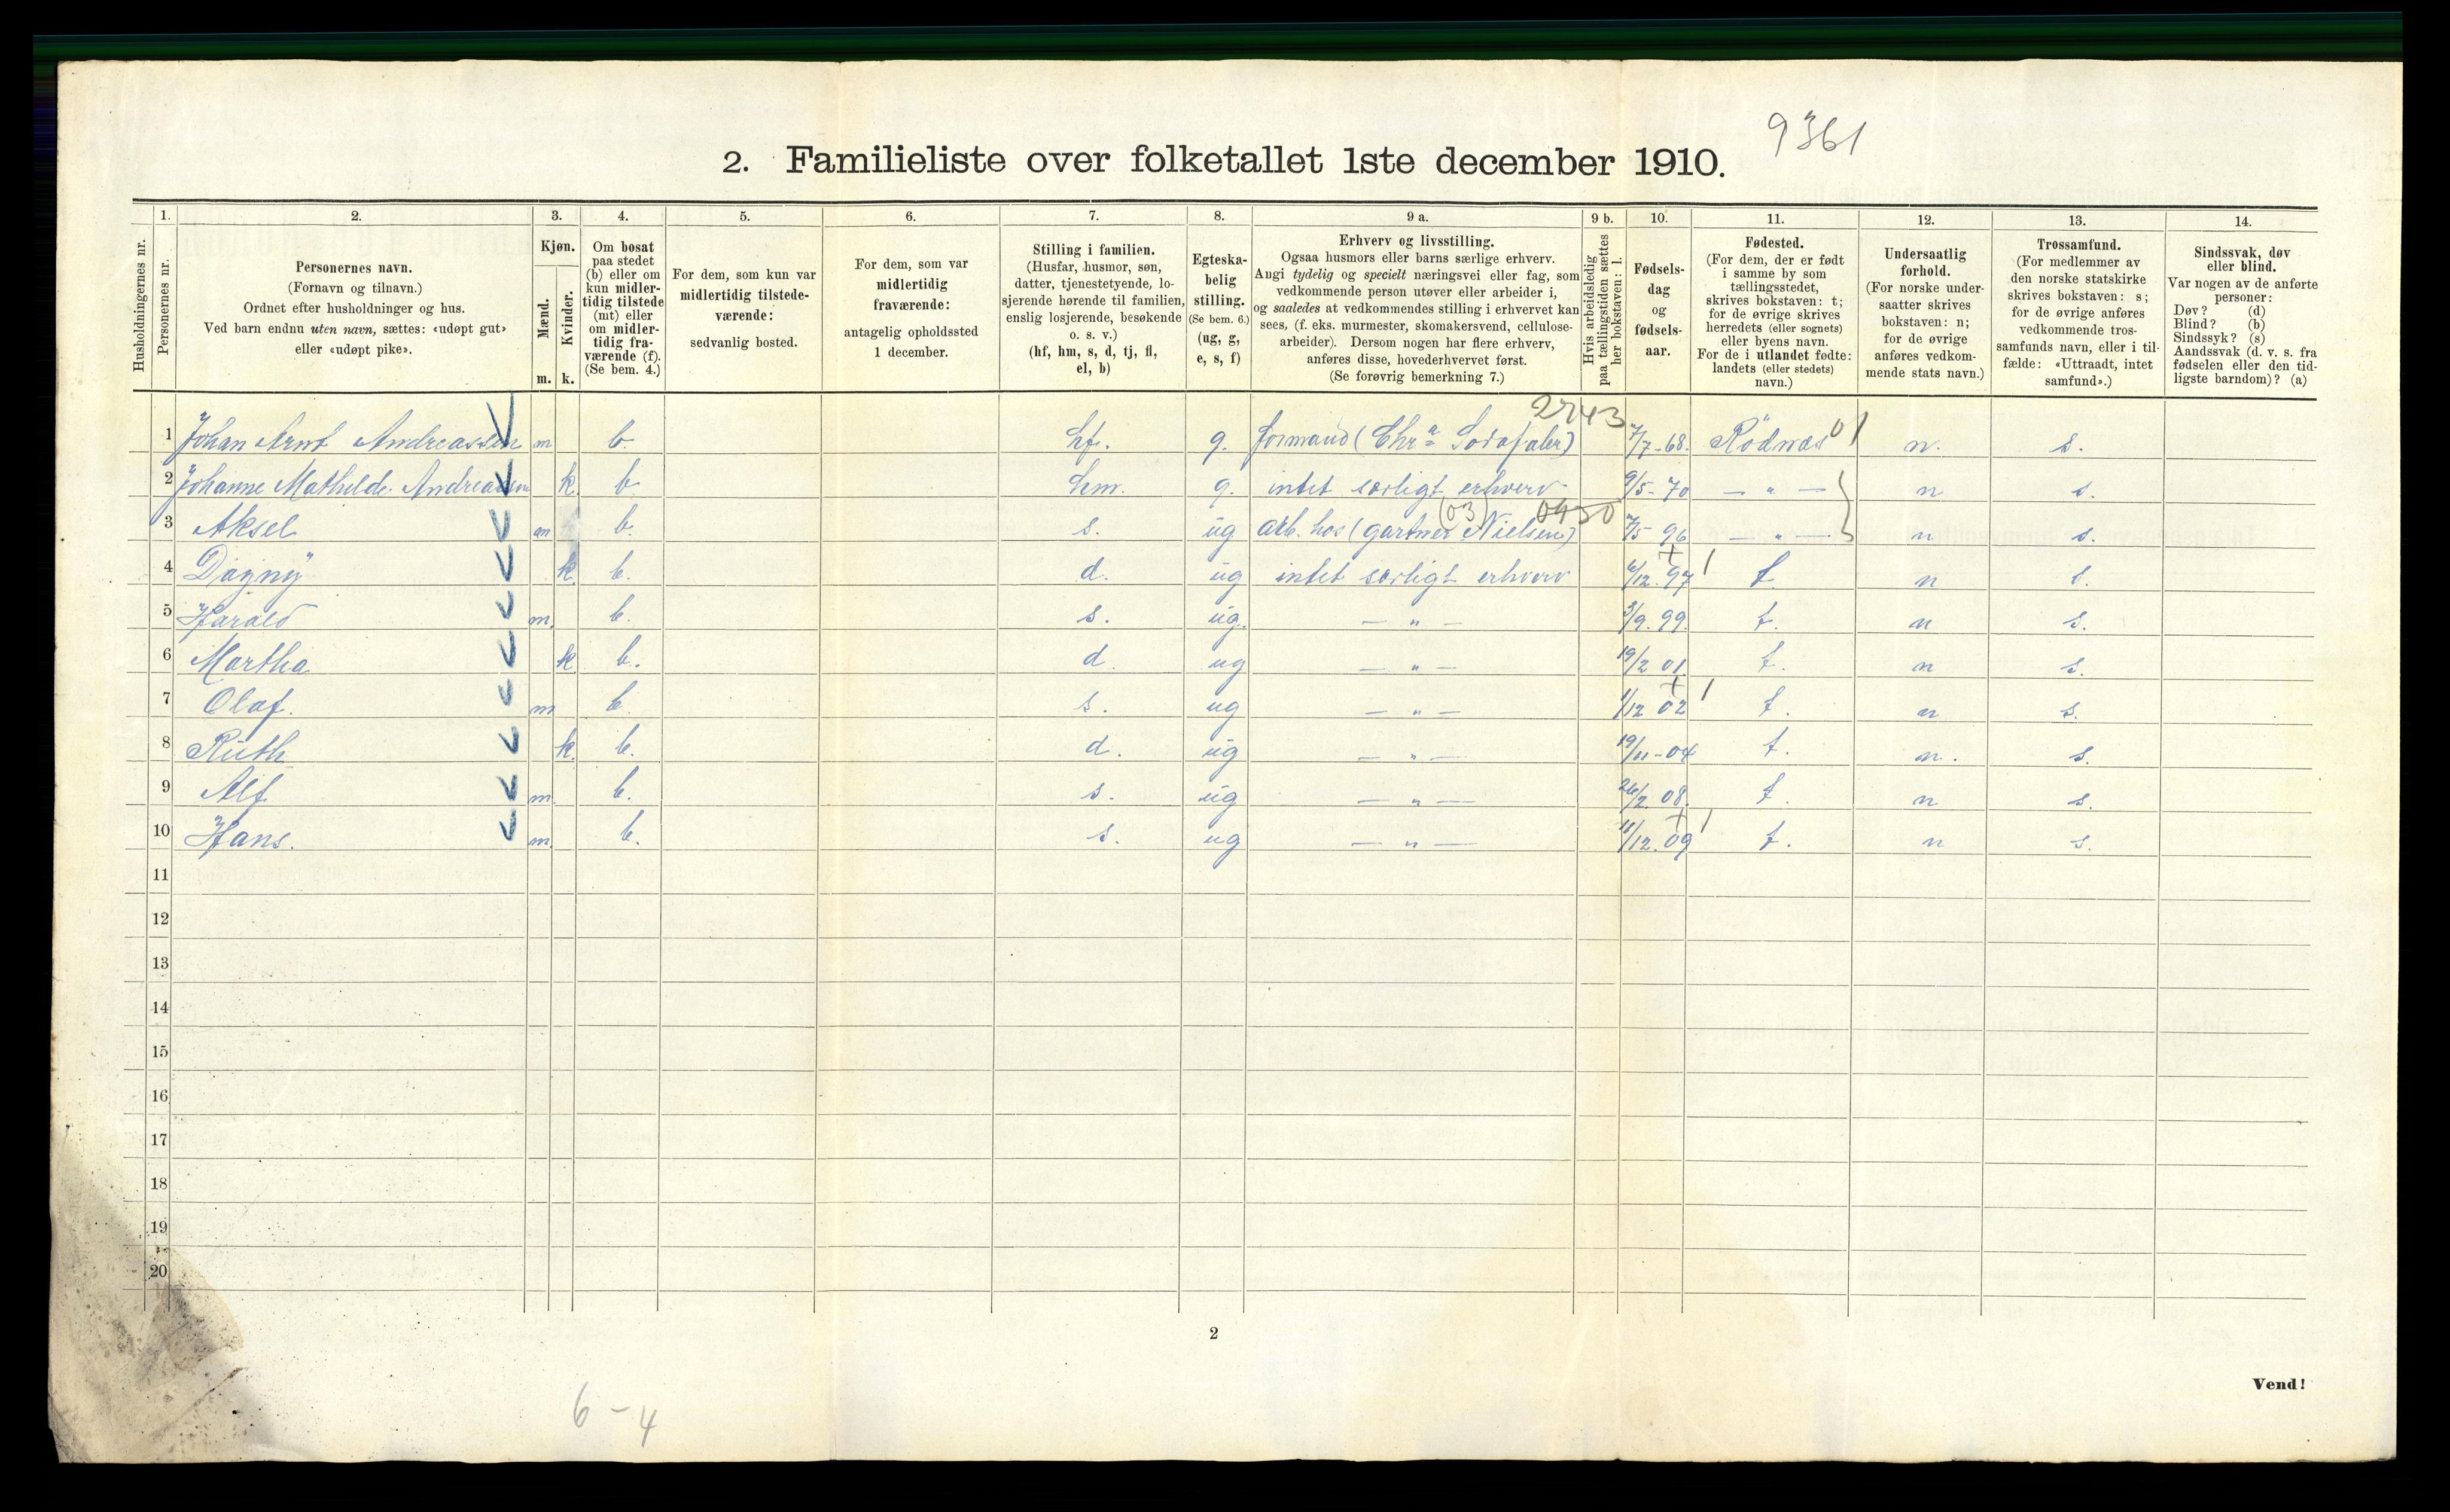 9361
2. Familieliste over folketallet 1ste december 1910.
1. 2. 3. 4. 5. 6. 7. 8. 9 a. 9 b. 10. 11. 12. 13. 14.
Husholdningernes nr.
Personernes nr.
Personernes navn.
(Fornavn og tilnavn.)
Ordnet efter husholdninger og hus.
Ved barn endnu uten navn, sættes: «udøpt gut»
eller «udøpt pike».
Kjøn.
Mænd.
Kvinder.
m. k.
Om bosat
paa stedet
(b) eller om
kun midler-
tidig tilstede
(mt) eller
om midler-
tidig fra-
værende (f).
(Se bem. 4.)
For dem, som kun var
midlertidig tilstede-
værende:
sedvanlig bosted.
For dem, som var
midlertidig
fraværende:
antagelig opholdssted
1 december.
Stilling i familien.
(Husfar, husmor, søn,
datter, tjenestetyende, lo-
sjerende hørende til familien,
enslig losjerende, besøkende
o. s. v.)
(hf, hm, s, d, tj, fl,
el, b)
Egteska-
belig
stilling.
(Se bem. 6.)
(ug, g,
e, s, f)
Erhverv og livsstilling.
Ogsaa husmors eller barns særlige erhverv.
Angi tydelig og specielt næringsvei eller fag, som
vedkommende person utøver eller arbeider i,
og saaledes at vedkommendes stilling i erhvervet kan
sees, (f. eks. murmester, skomakersvend, cellulose-
arbeider). Dersom nogen har flere erhverv,
anføres disse, hovederhvervet først.
(Se forøvrig bemerkning 7.)
Hvis arbeidsledig
paa tællingstiden sættes
her bokstaven: l.
Fødsels-
dag
og
fødsels-
aar.
Fødested.
(For dem, der er født
i samme by som
tællingsstedet,
skrives bokstaven: t;
for de øvrige skrives
herredets (eller sognets)
eller byens navn.
For de i utlandet fødte:
landets (eller stedets)
navn.)
Undersaatlig
forhold.
(For norske under-
saatter skrives
bokstaven: n;
for de øvrige
anføres vedkom-
mende stats navn.)
Trossamfund.
(For medlemmer av
den norske statskirke
skrives bokstaven: s;
for de øvrige anføres
vedkommende tros-
samfunds navn, eller i til-
fælde: «Uttraadt, intet
samfund».)
Sindssvak, døv
eller blind.
Var nogen av de anførte
personer:
Døv? (d)
Blind? (b)
Sindssyk? (s)
Aandssvak (d. v. s. fra
fødselen eller den tid-
ligste barndom)? (a)
2743
1 Johan Arnt Andreassen m b. hf. g. formand (Chra 7/7-68. Rödnæs 01 n. s.
2 Johanne Mathilde Andreassen k b hm. g. intet særligt erhverv 9/5-70 — " — n s.
(03) 0450
3 Aksel m b. s. ug arb. hos (gartner Nielsen) 7/5 96 — " — n s.
4 Dagny k. b. d. ug intet særligt erhverv 6/12.97 1 t n s.
5 Harald m. b. s. ug. — " — 3/9.99. t. n s.
6 Martha k b. d. ug — " — 19/2 01. t. n s.
7 Olaf. m b. s. ug — " — 1/12 02 1 t. n s.
8 Ruth k. b. d. ug — " — 19/11-04 t. n. s.
9 Alf m. b. s. ug — " — 26/2.08. t. n s.
10 Hans. m. b. s. ug — " — 11/12.09 1 t. n s.
11
12
13
14
15
16
17
18
19
20
2
Vend!
6-4